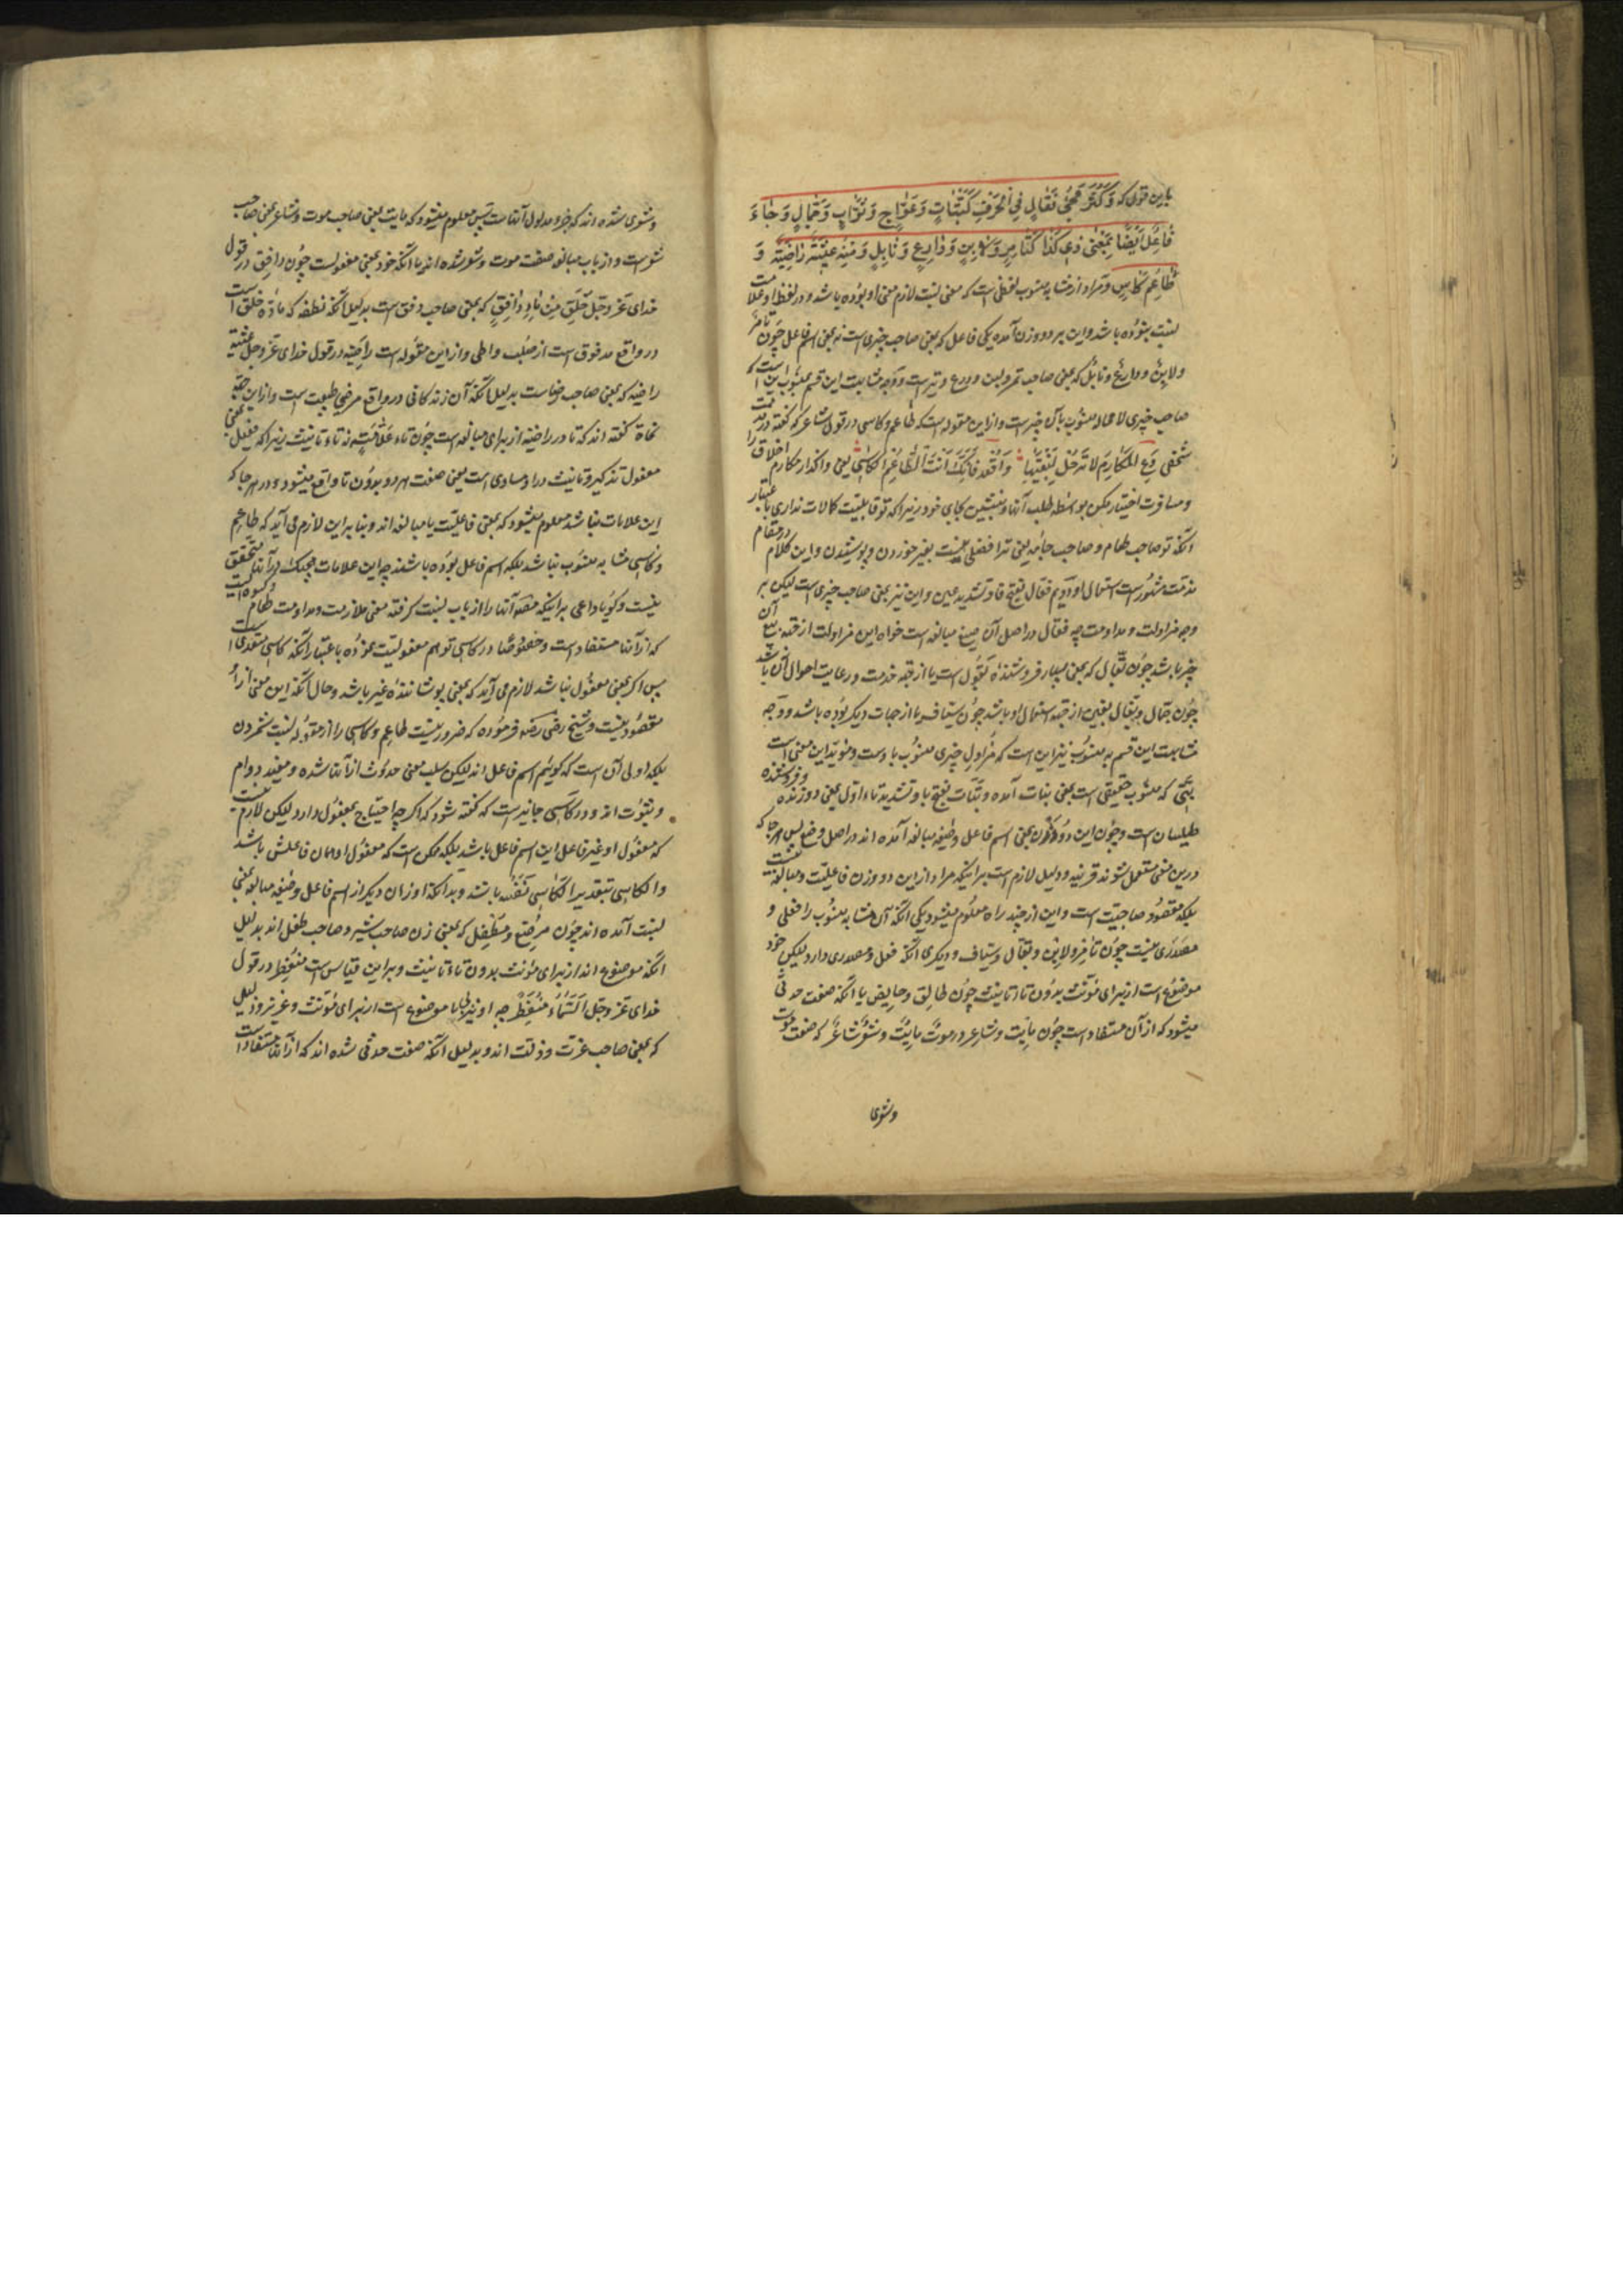 باین قول که وَ کَثُرَ مَجِیْءُ فَعَّالٍ فِي الْحِرَفِ کَبَتَّاتٍ وَ عَوَّاجٍ وَ ثَوَّابٍ وَ جَمَّالٍ وَ جَاءَ
فَاعِلٌ اَیْضًا بِمَعْنٰی ذِي کَذَا کَتَامِرٍ وَ لَابِنٍ وَ دَارِعٍ وَ نَابِلٍ وَ مِنْهُ عِیْشَةٌ رَاضِیَةٌ وَ
طَاعِمٌ کَاسٍ و مراد از مشابه منسوب لفظی است که معنی نسبت لازم معنی او بوده باشد و در لفظ او علامت
نسبت نبوده باشد و این بر دو وزن آمده یکی فاعل که بمعنی صاحب چیزی است نه بمعنی اسم فاعل چون تامر
و لابن و دارع و نابل که بمعنی صاحب تمر و لبن و درع و نبل است و وجه مشابهت این قسم بمنسوب این است که
صاحب چیزی لا محاله منسوب بآن چیز است و از این مقوله است طاعم و کاسی در قول شاعر که گفته در مذمت
شخصی دَعِ الْمَکَارِمَ لَا تَرْحَلْ لِبُغْیَتِهَا وَاقْعُدْ فَاِنَّکَ اَنْتَ الطَّاعِمُ الْکَاسِي یعنی واگذار مکارم اخلاق را
و مسافرت اختیار مکن بواسطه طلب آنها و بنشین بجای خود زیرا که تو قابلیت کمالات نداری باعتبار
آنکه تو صاحب طعام و صاحب جامه یعنی ترا فضلی نیست بغیر خوردن و پوشیدن و این کلام در مقام
مذمت مشهور است استعمال او دویم فعال بفتح فا و تشدید عین و این نیز بمعنی صاحب چیزی است لیکن بر
وجه مزاولت و مداومت چه فعال در اصل آن صیغه مبالغه است خواه این مزاولت از جهة بیع آن
چیز باشد چون بقال که بمعنی بسیار فروشنده بقول است یا از جهة خدمت و رعایت احوال آن باشد
چون جمال و بغال بغین از جهة استعمال او باشد چون سیاف یا از جهات دیگر بوده باشد و وجه
مشابهت این قسم به منسوب نیز این است که مزاول چیزی منسوب باوست و مؤید این معنی است
بتی که منسوب حقیقی است بمعنی بتات آمده و بتات بفتح با و تشدید تاء اول بمعنی دوزنده و فروشنده
طیلسان است و چون این دو وزن بمعنی اسم فاعل و صیغه مبالغه آمده اند در اصل وضع پس هر جا که
درین معنی مستعمل شوند قرینه و دلیل لازم است بر اینکه مراد از این دو وزن فاعلیت و مبالغه نیست
بلکه مقصود صاحبیت است و این از چند راه معلوم میشود یکی آنکه آن مشابه منسوب را فعلی و
مصدری نیست چون تامر و لابن و بقال و سیاف و دیگری آنکه فعل و مصدری دارد لیکن خود
موضوع است از برای مؤنث بدون تاء تانیث چون طالق و حایض یا آنکه صفت حدثی
میشود که از آن مستفاد است چون مایت و شاعر در موت مایت و شعر شاعر که صفت موت
و شعری
و شعری شده اند که جزو مدلول آنهاست پس معلوم میشود که مایت یعنی صاحب موت و شاعر بمعنی صاحب
شعر است و از باب مبالغه صفت موت و شعر شده اند یا آنکه خود بمعنی مفعولست چون دافق در قول
خدای عز و جل خُلِقَ مِنْ مَاءٍ دَافِقٍ که بمعنی صاحب دفق است بدلیل آنکه نطفه که ماده خلق است
در واقع مدفوق است از صلب واطی و از این مقوله است راضیه در قول خدای عز و جل عیشة
راضیه که بمعنی صاحب رضاست بدلیل آنکه آن زندگانی در واقع مرضی طبیعت است و از این جهة
نحاة گفته اند که تا در راضیه از برای مبالغه است چون تاء علامة نه تاء تانیث زیرا که فعیل بمعنی
مفعول تذکیر و تانیث در او مساوی است یعنی صفت هر دو بدون تا واقع میشود و در هر جا که
این علامات نباشد معلوم میشود که بمعنی فاعلیت یا مبالغه اند و بنابراین لازم می آید که طاعم
و کاسی مشابه منسوب نباشد بلکه اسم فاعل بوده باشند چه این علامات هیچیک در آنها متحقق
نیست و گویا داعی بر اینکه مصنف آنها را از باب نسبت گرفته معنی ملازمت و مداومت طعام و کسوه است
که از آنها مستفاد است و خصوصا در کاسی توهم مفعولیت نموده باعتبار آنکه کاسی متعدی است
پس اگر بمعنی مفعول نباشد لازم می آید که بمعنی پوشاننده غیر باشد و حال آنکه این معنی از او
مقصود نیست و شیخ رضی رضه فرموده که ضرور نیست طاعم و کاسی را از مقوله نسبت شمردن
بلکه اولی آن است که گوییم اسم فاعل اند لیکن سلب معنی حدوث از آنها شده و مفید دوام
و ثبوت اند و در کاسی جایز است که گفته شود که اگر چه احتیاج بمفعول دارد لیکن لازم نیست
که مفعول او غیر فاعل این اسم فاعل باشد بلکه ممکن است که مفعول او همان فاعلش باشد
و الکاسی بتقدیر الکاسی نفسه باشد و بدانکه اوزان دیگر از اسم فاعل و صیغه مبالغه بمعنی
نسبت آمده اند چون مرضع و مطفل که بمعنی زن صاحب شیر و صاحب طفل اند بدلیل
آنکه موضوع اند از برای مؤنث بدون تاء تانیث و بر این قیاس است منفطر در قول
خدای عز و جل اَلسَّمَاءُ مُنْفَطِرٌ چه او نیز موضوع است از برای مؤنث و عزیز و ذلیل
که بمعنی صاحب عزت و ذلت اند و بدلیل آنکه صفت حدثی شده اند که از آنها مستفاد است